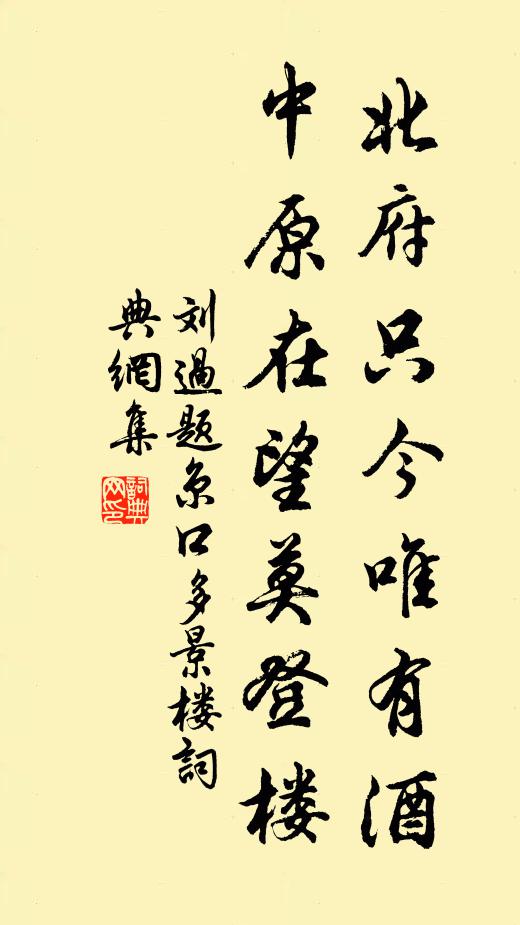 北府只今唯有酒
中原在望莫登楼
刘過题京口多景楼詞
典網集
詞典
网印